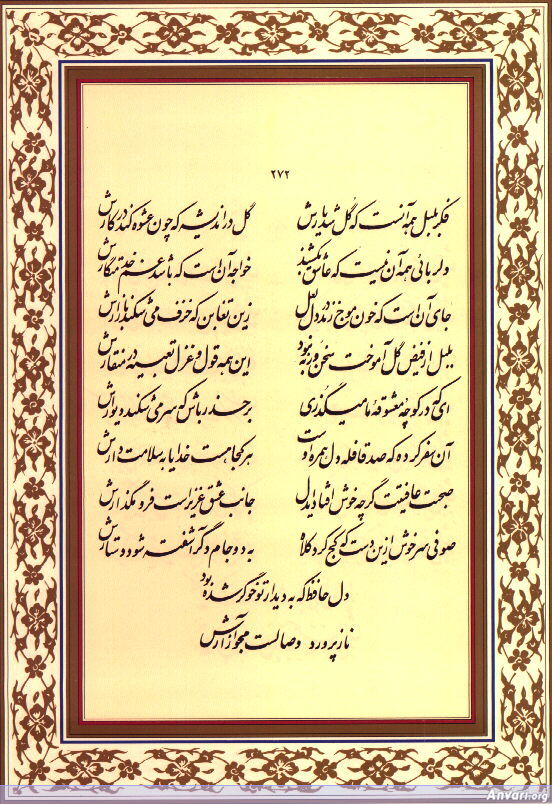 ۲۷۲
فکر بلبل همه آنست که گل شد یارش گل در اندیشه که چون عشوه کند در کارش
دلربائی همه آن نیست که عاشق بکشند خواجه آن است که باشد غم خدمتگارش
جای آن است که خون موج زند در دل لعل زین تغابن که خزف می شکند بازارش
بلبل از فیض گل آموخت سخن ورنه نبود این همه قول و غزل تعبیه در منقارش
ای که در کوچه معشوقهٔ ما میگذری بر حذر باش که سر می شکند دیوارش
آن سفر کرده که صد قافله دل همره اوست هر کجا هست خدایا به سلامت دارش
صحبت عافیتت گرچه خوش افتاد ایدل جانب عشق عزیز است فرو مگذارش
صوفی سرخوش ازین دست که کج کرد کلاه به دو جام دگر آشفته شود دستارش
دل حافظ که به دیدار تو خوگر شده بود
ناز پرورد وصالست مجو آزارش
Anvari.org